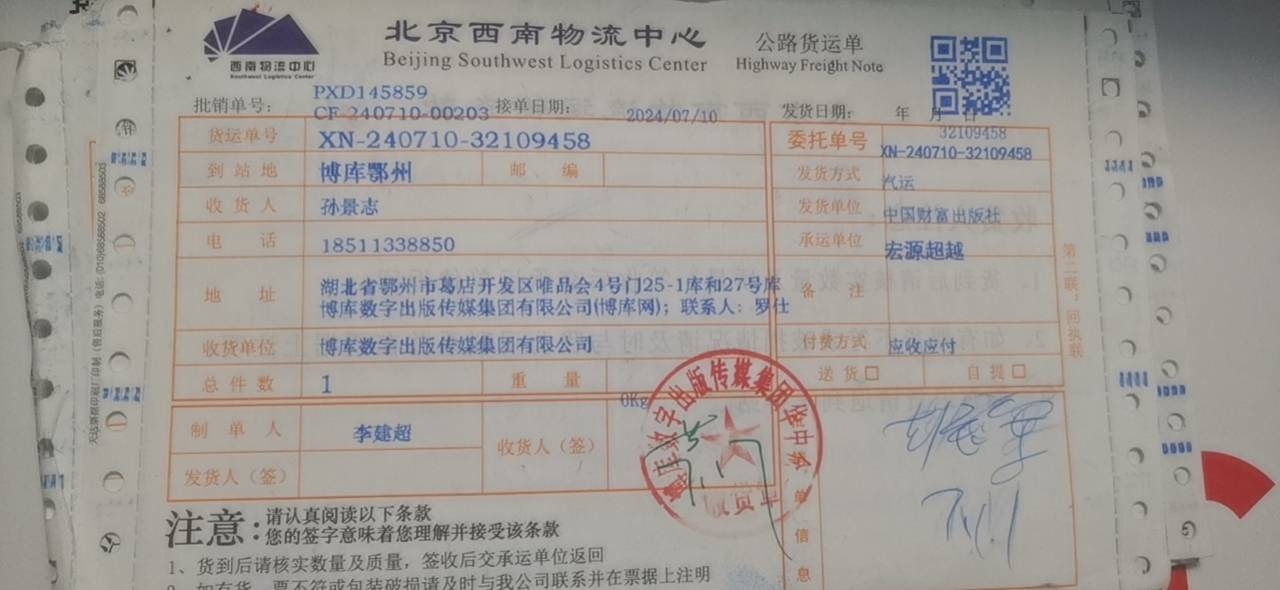 西南物流中心
Southwest Logistics Center
北京西南物流中心
Beijing Southwest Logistics Center
公路货运单
Highway Freight Note
批销单号：
PXD145859
CF-240710-00203
接单日期：
2024/07/10
发货日期：
年 月 日
货运单号
XN-240710-32109458
委托单号
32109458
XN-240710-32109458
到站地
博库鄂州
邮编
发货方式
汽运
收货人
孙景志
发货单位
中国财富出版社
电话
18511338850
承运单位
宏源超越
地址
湖北省鄂州市葛店开发区唯品会4号门25-1库和27号库
博库数字出版传媒集团有限公司(博库网)；联系人：罗仕
备注
收货单位
博库数字出版传媒集团有限公司
付费方式
应收应付
总件数
1
重量
0Kg
送货□
自提□
制单人
李建超
收货人（签）
发货人（签）
单
信
息
第二联：回执联
注意：
请认真阅读以下条款
您的签字意味着您理解并接受该条款
1、货到后请核实数量及质量，签收后交承运单位返回
2、如有货、票不符或包装破损请及时与我公司联系并在票据上注明
数字出版传媒集团华中